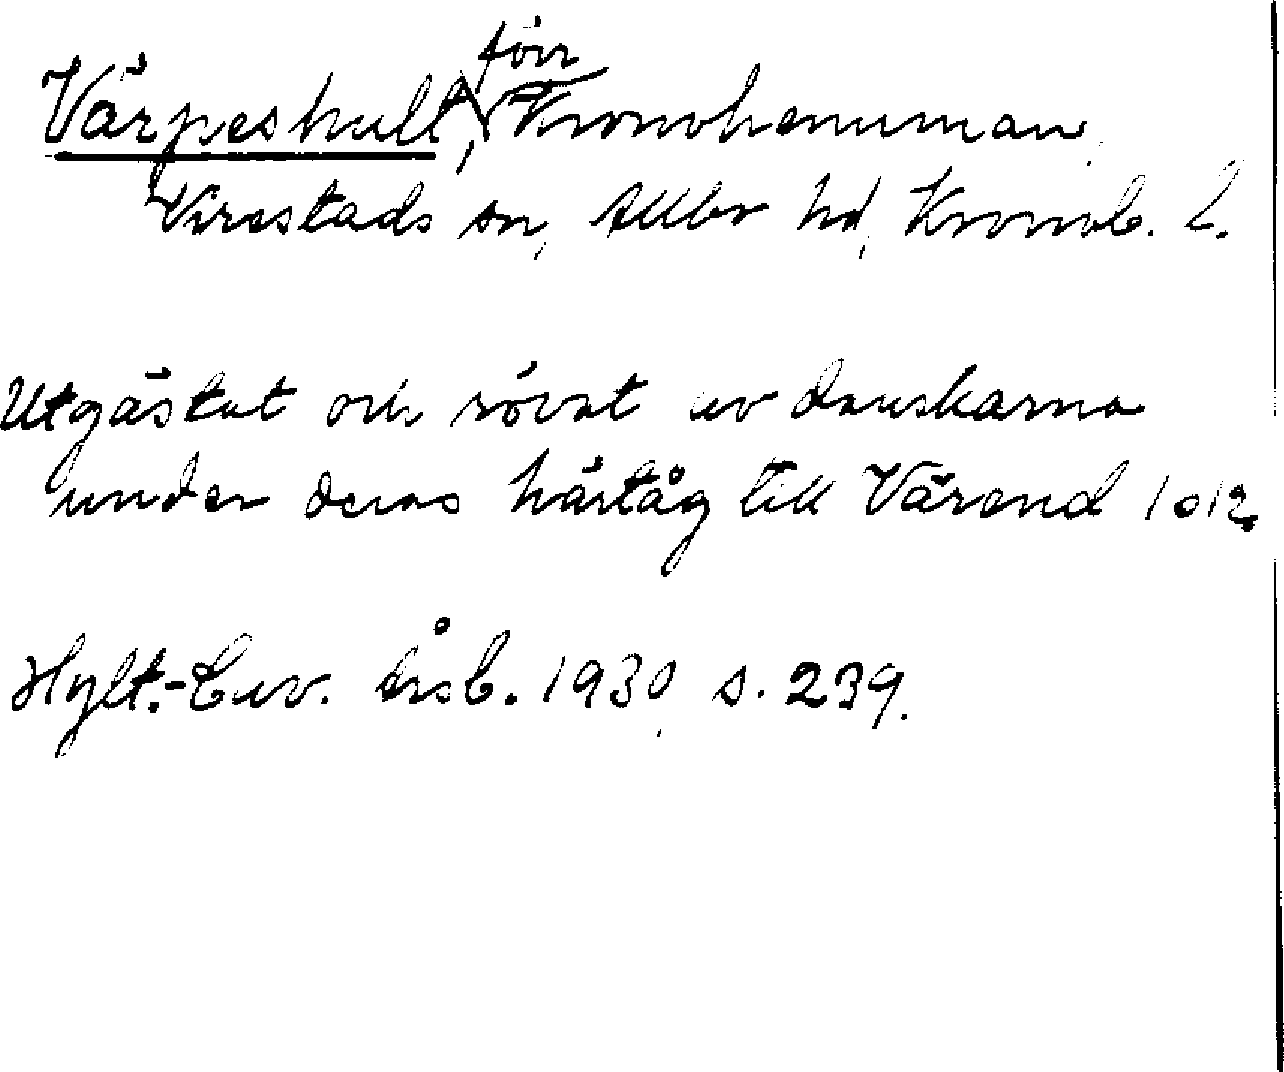 Värpeshult, förr Kronohemman
Virestads sn, Allbo hd, Kronob. l.
Utgästat och rövat av danskarna
under deras härtåg till Värend 1612
Hylt.-Cav. årsb. 1930, s. 239.